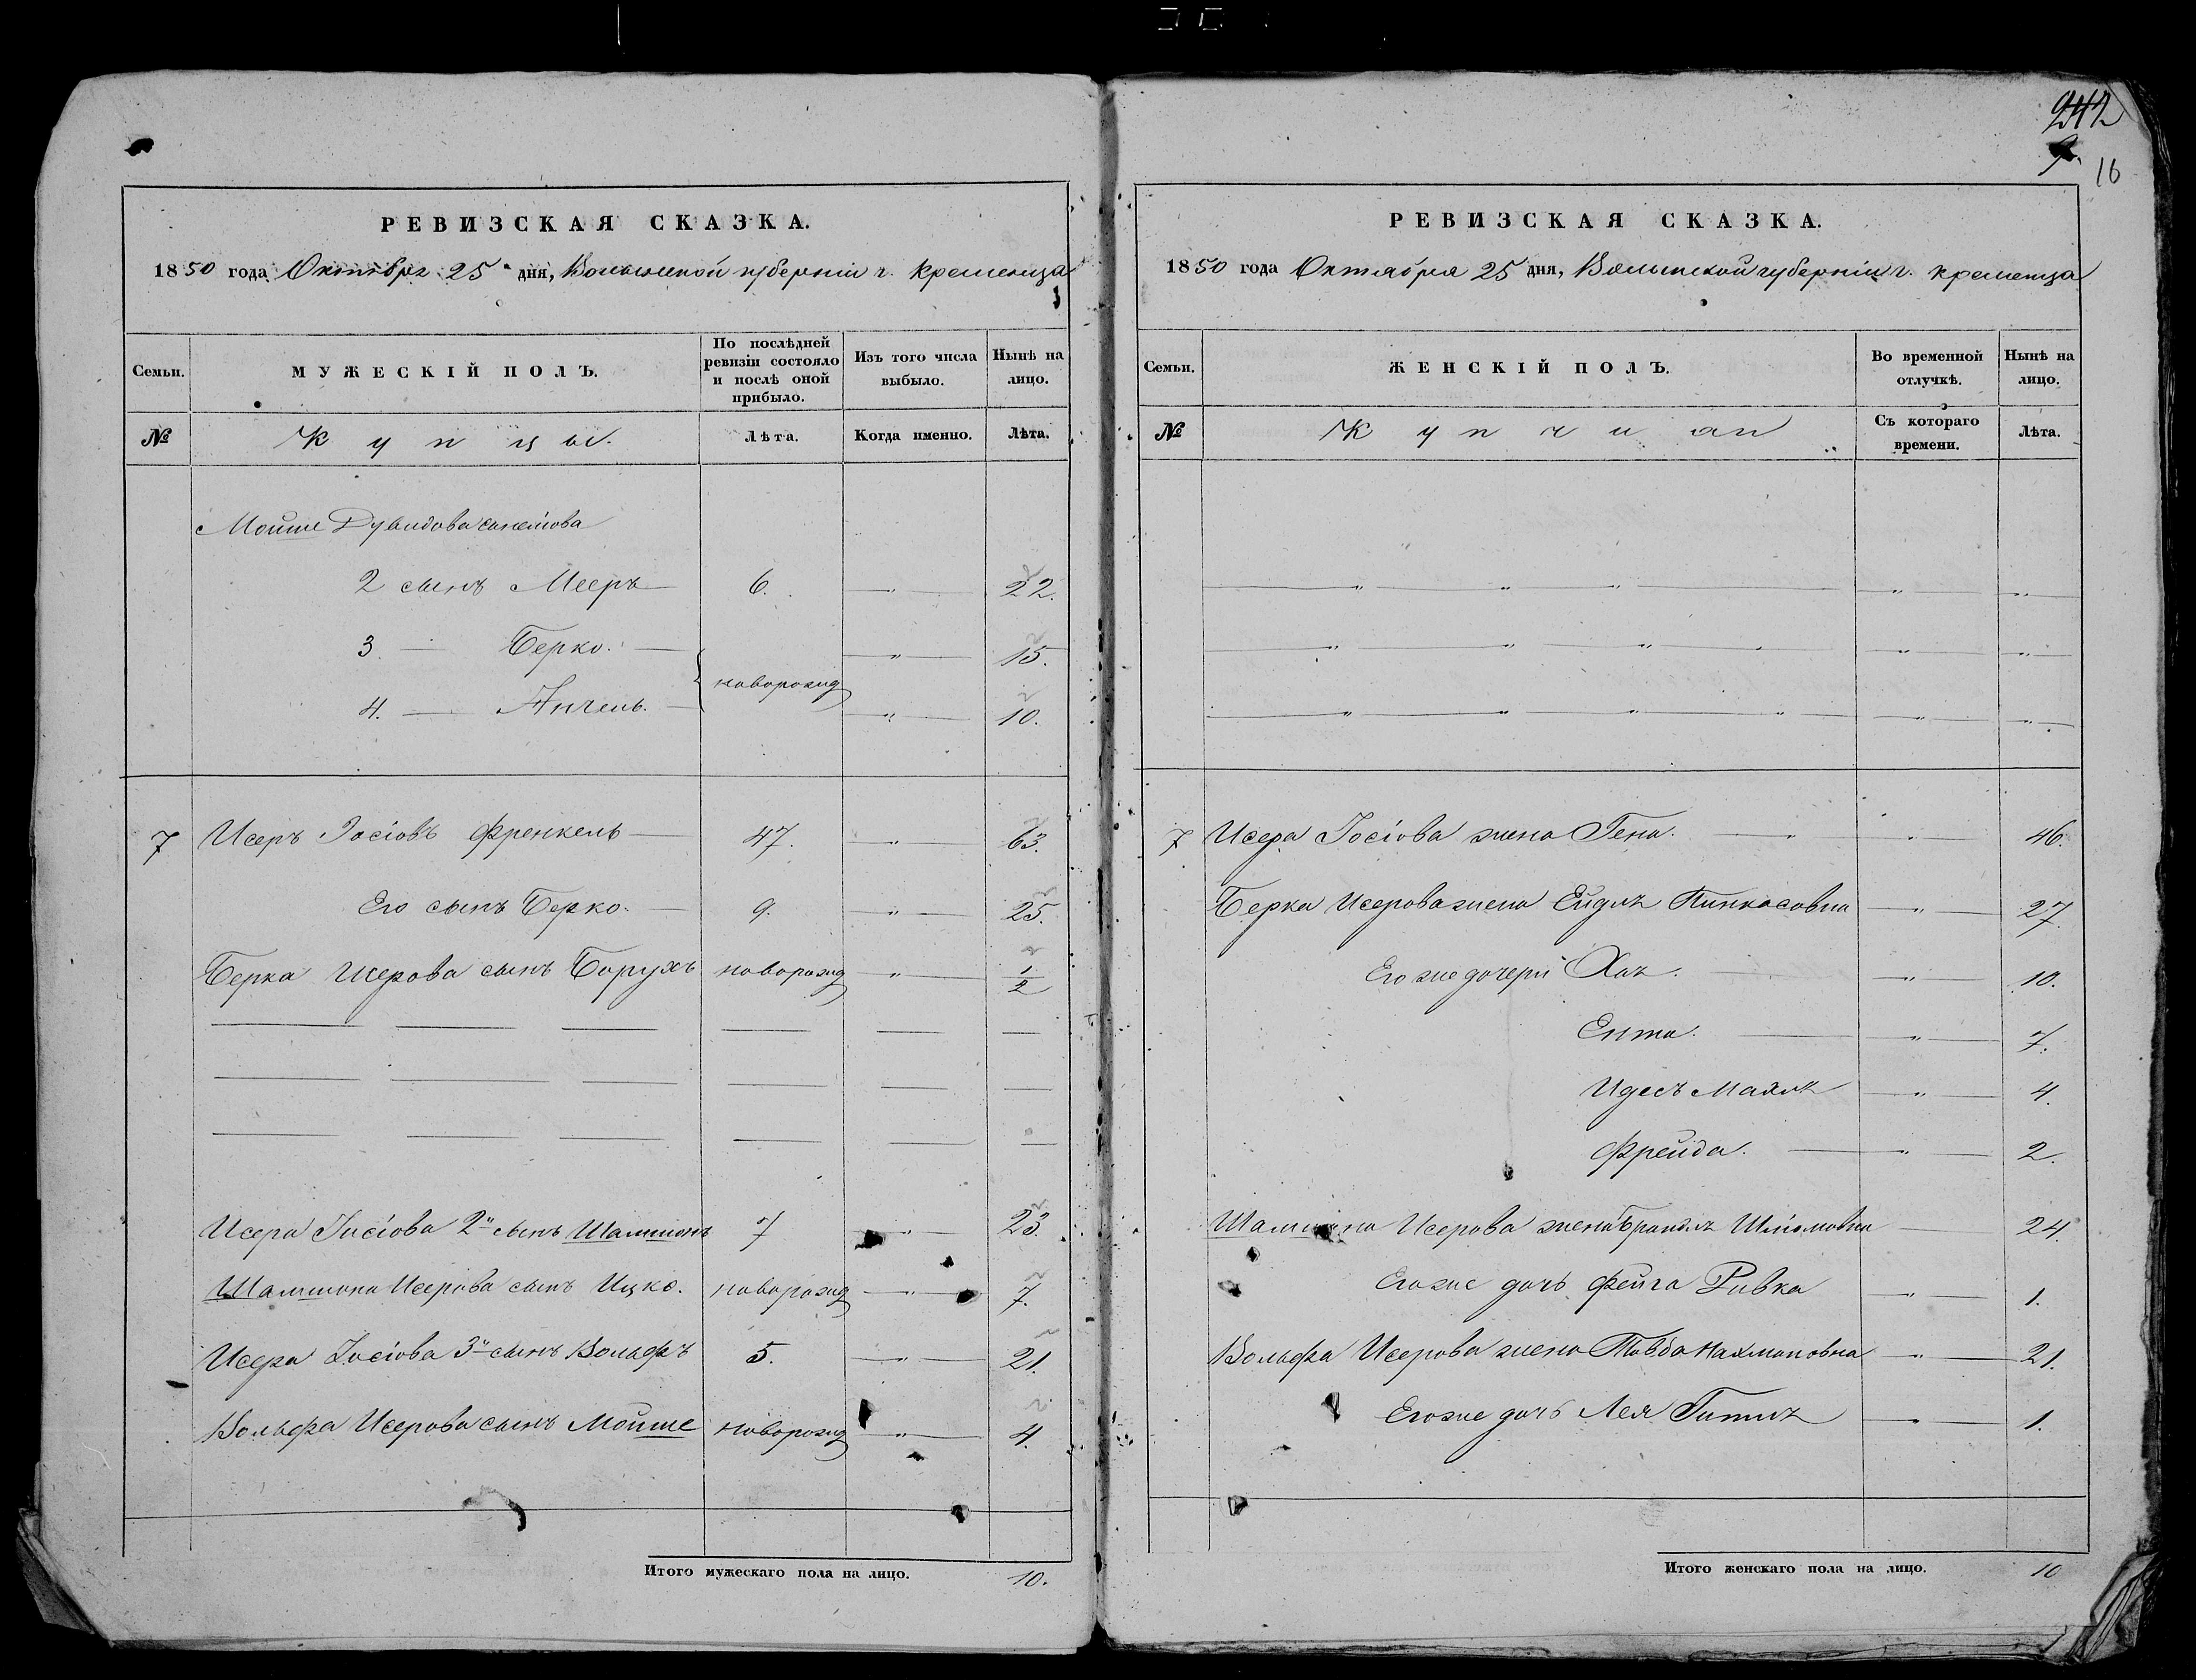 242
16
РЕВИЗСКАЯ СКАЗКА.
1850 года Октября 25 дня, Волынской губерніи г. Кременца
Семьи.
МУЖЕСКІЙ ПОЛЪ.
По послѣдней ревизіи состояло и послѣ оной прибыло.
Изъ того числа выбыло.
Нынѣ на лицо.
№
Купцы.
Лѣта.
Когда именно.
Лѣта.
Мошие Дувидова
2 сынъ Мееръ 6. 22.
3 — Берко. 15.
новорожд
4. — Анчель. 10.
7 Исеръ Іосіовъ Френкель 47. 63.
Его сынъ Берко. 9. 25.
Берка Исерова сынъ Борухъ новорожд 1/2
Исера Іосіова 2й сынъ Шамшонъ 7 23.
Шамшона Исерова сынъ Ицко. новорожд 7.
Исера Іосіова 3й сынъ Вольфъ 5. 21.
Вольфа Исерова сынъ Мошие новорожд 4.
Итого мужескаго пола на лицо. 10.
РЕВИЗСКАЯ СКАЗКА.
1850 года Октября 25 дня, Волынской губерніи г. Кременца
Семьи.
ЖЕНСКІЙ ПОЛЪ.
Во временной отлучкѣ.
Нынѣ на лицо.
№
Съ котораго времени.
Лѣта.
7 Исера Іосіова жена Гена. 46.
Берка Исерова жена Ейдля Пинкасовна 27.
Его же дочери Хая. 10.
Ента. 7.
Идесъ Маля 4.
Фрейда. 2.
Шамшона Исерова жена Брандля Шлiомовна 24.
Его же дочь Фейга Ривка 1.
Вольфа Исерова жена Нахмановна 21.
Его же дочь Лея Гитля 1.
Итого женскаго пола на лицо. 10